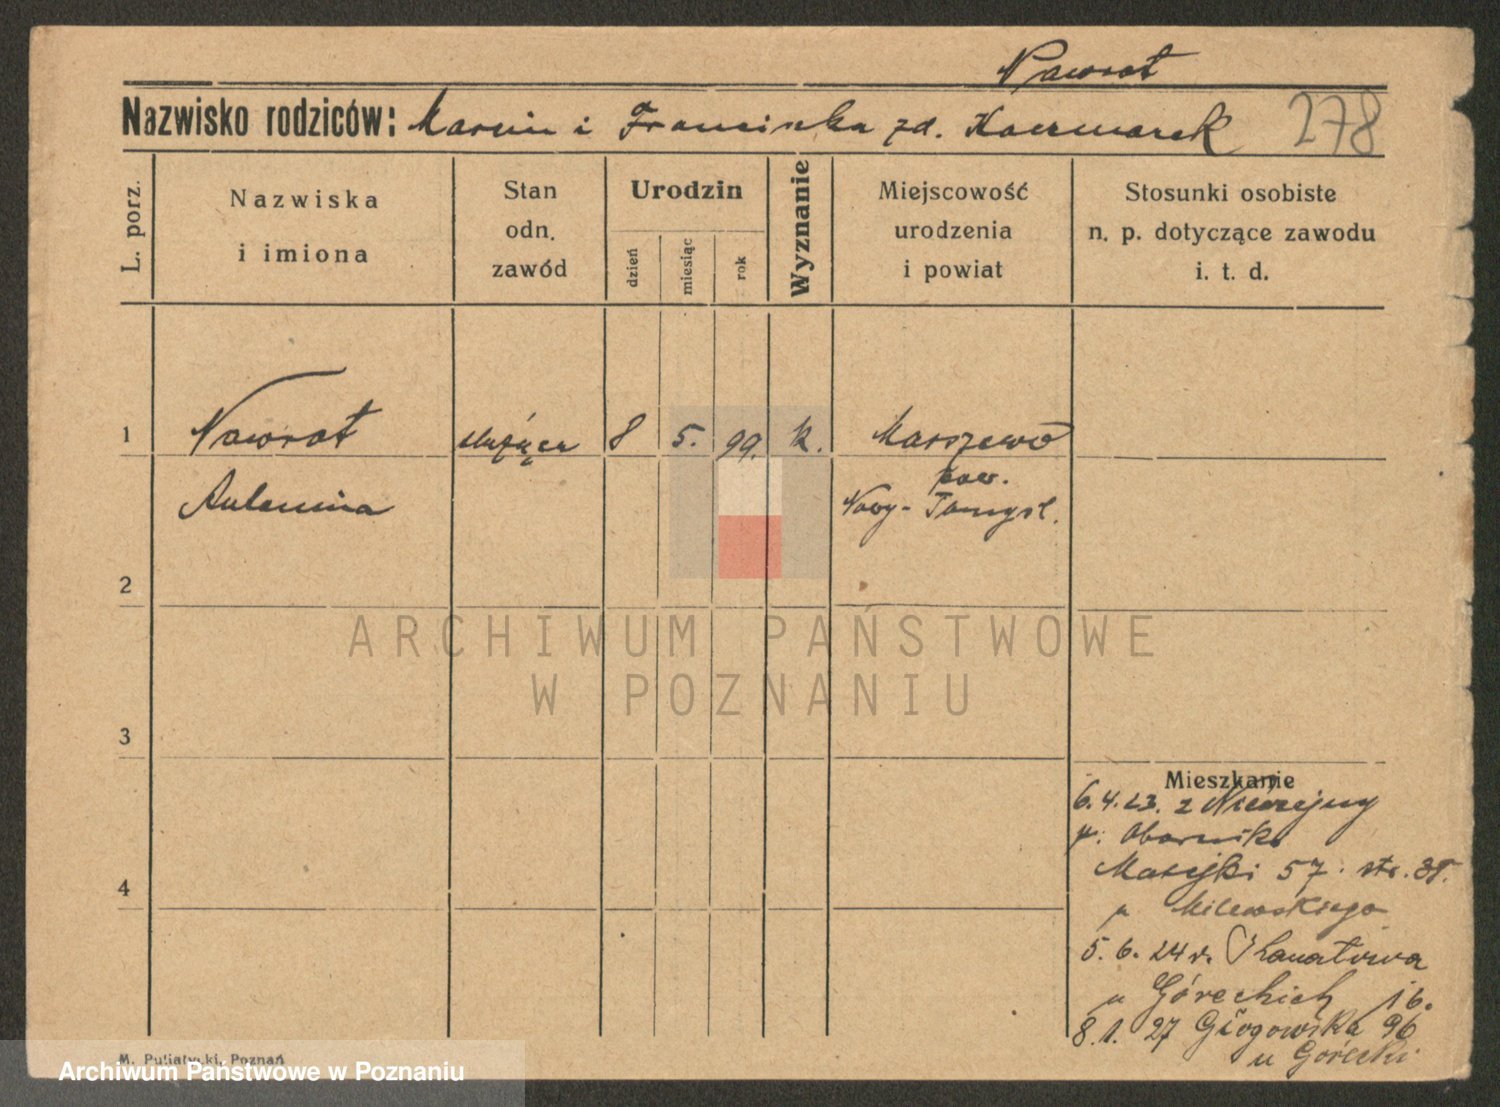 Nawrot
Nazwisko rodziców: Marcin i Franciszka zd. Kaczmarek 278
L. porz.
Nazwiska
i imiona
Stan
odn.
zawód
Urodzin
dzień
miesiąc
rok
Wyznanie
Miejscowość
urodzenia
i powiat
Stosunki osobiste
n. p. dotyczące zawodu
i. t. d.
1 Nawrot służąca 8 5. 99. k. Marszewo
pow.
Antonina Nowy-Tomyśl.
2
ARCHIWUM PAŃSTWOWE
W POZNANIU
3
Mieszkanie
6.4.23. z
p. Oborniki
4 Matejki 57. str.
u Milewskiego
5.6.24 r.
u Góreckich 16.
8.1.27 Głogowska 96
u Górecki
M. Putiatycki, Poznań
Archiwum Państwowe w Poznaniu